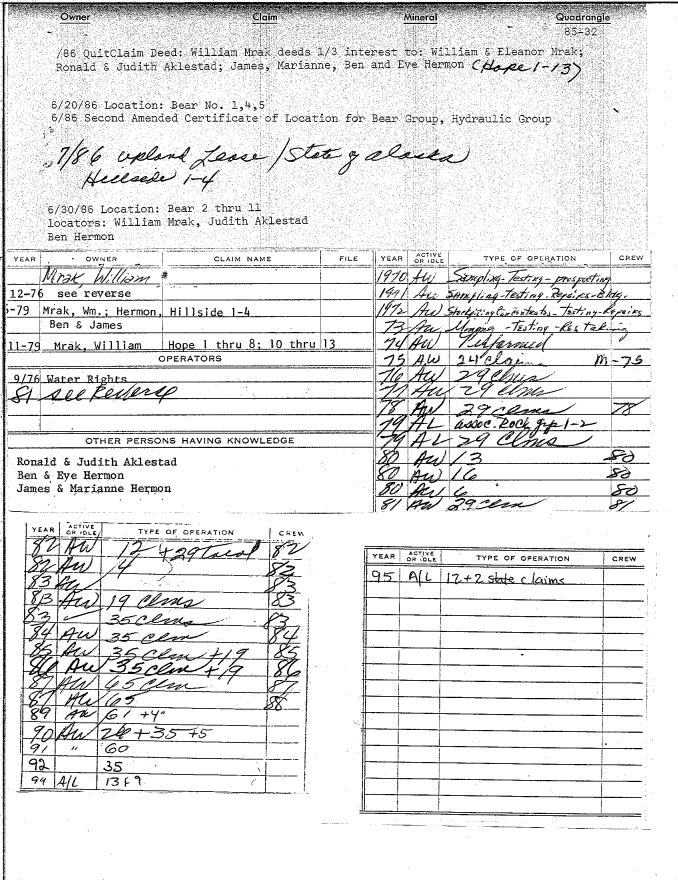 Owner Claim Mineral Quadrangle
85-32
/86 QuitClaim Deed: William Mrak deeds 1/3 interest to: William & Eleanor Mrak;
Ronald & Judith Aklestad; James, Marianne, Ben and Eve Hermon (Hope 1-13)
6/20/86 Location: Bear No. 1,4,5
6/86 Second Amended Certificate of Location for Bear Group, Hydraulic Group
7/86 Upland Lease / State of Alaska
Hillside 1-4
6/30/86 Location: Bear 2 thru 11
locators: William Mrak, Judith Aklestad
Ben Hermon
YEAR OWNER CLAIM NAME FILE
Mrak, William
12-76 see reverse
-79 Mrak, Wm.; Hermon, Hillside 1-4
Ben & James
11-79 Mrak, William Hope 1 thru 8; 10 thru 13
OPERATORS
9/76 Water Rights
81 see Reverse
OTHER PERSONS HAVING KNOWLEDGE
Ronald & Judith Aklestad
Ben & Eye Hermon
James & Marianne Hermon
YEAR ACTIVE OR IDLE TYPE OF OPERATION CREW
1970 AW Sampling-Testing-prospecting
1971 AW Sampling-testing-Repairs-Bldg.
1972 AW Testing-Repairs
73 AW Testing
74 AW Performed
75 AW 24 claim M-75
76 AW 29 Clms
77 AW 29 Clms
78 AW 29 Clms 78
79 AL assoc. Rock grp 1-2
79 AL 29 Clms
80 AW 13 80
80 AW 16 80
80 AW 6 80
81 AW 29 Clm 81
YEAR ACTIVE OR IDLE TYPE OF OPERATION CREW
82 AW 12 + 29 82
82 AW 4 82
83 AW 83
83 AW 19 Clms 83
83 35 Clms 83
84 AW 35 Clm 84
85 AW 35 Clm +19 85
86 AW 35 Clm +19 86
87 AW 65 Clm 87
87 AW 65 88
89 AW 61 +4
90 AW 28 + 35 +5
91 " 60
92 35
94 A/L 13 f 9
YEAR ACTIVE OR IDLE TYPE OF OPERATION CREW
95 A/L 12+2 state claims